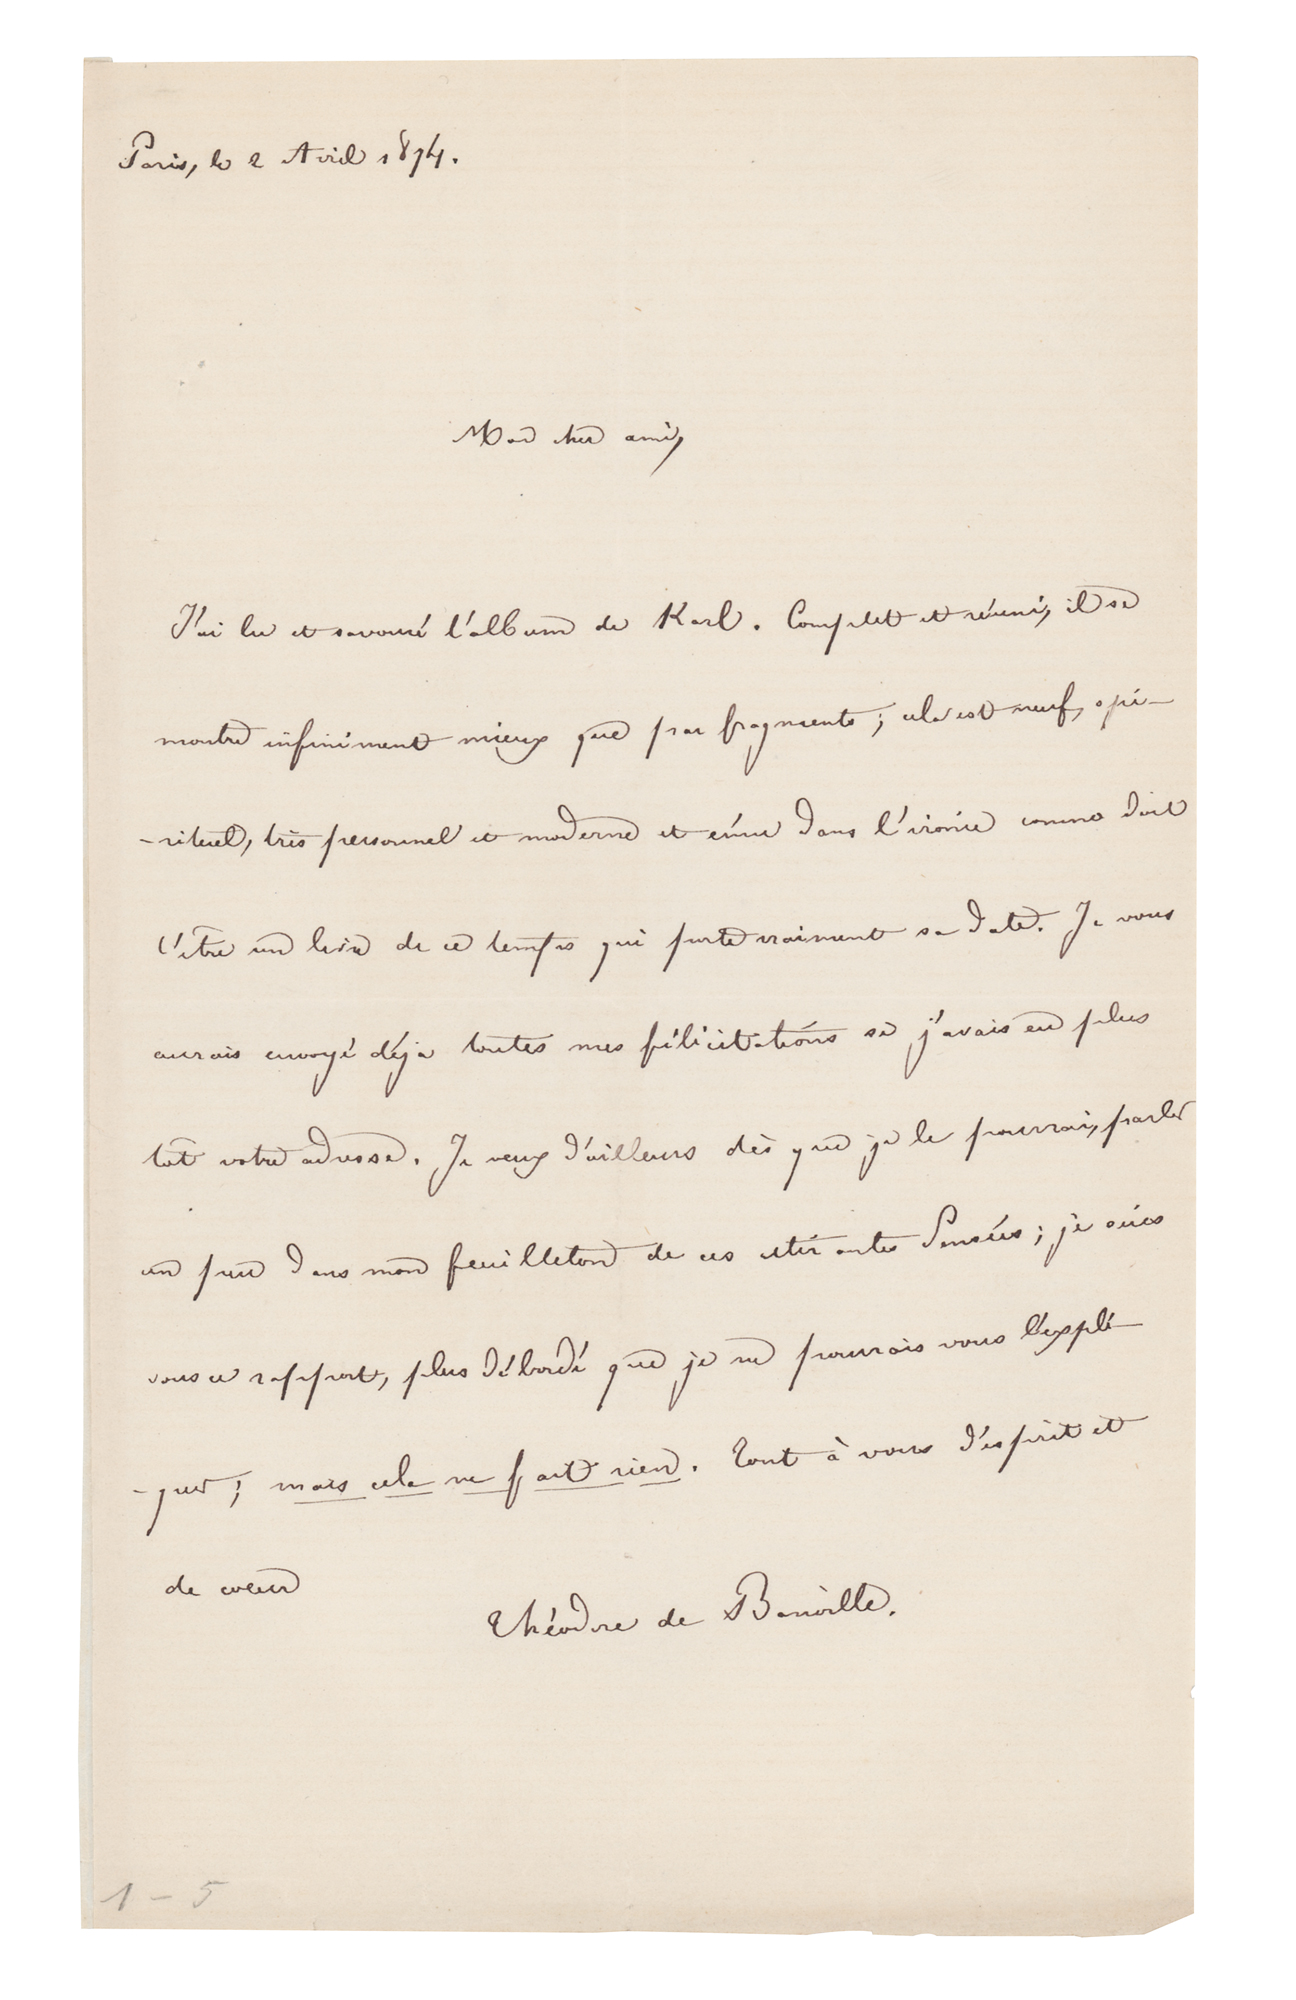 Paris, le 2 Avril 1874.
Mon cher ami,
J'ai lu et savouré l'album de Karl. Complet et réuni, il se
montre infiniment mieux que par fragments; cela est neuf, spi-
-rituel, très personnel et moderne et ému dans l'ironie comme doit
l'être un livre de ce temps qui porte vraiment sa date. Je vous
aurais envoyé déja toutes mes félicitations si j'avais eu plus
tôt votre adresse. Je veux d'ailleurs dès que je le pourrai, parler
un peu dans mon feuilleton de ces Pensées; je suis
sous ce rapport, plus débordé que je ne pourrais vous l'expli-
-quer; mais cela ne fait rien. Tout à vous d'esprit et
de coeur
Théodore de Banville.
1 - 5